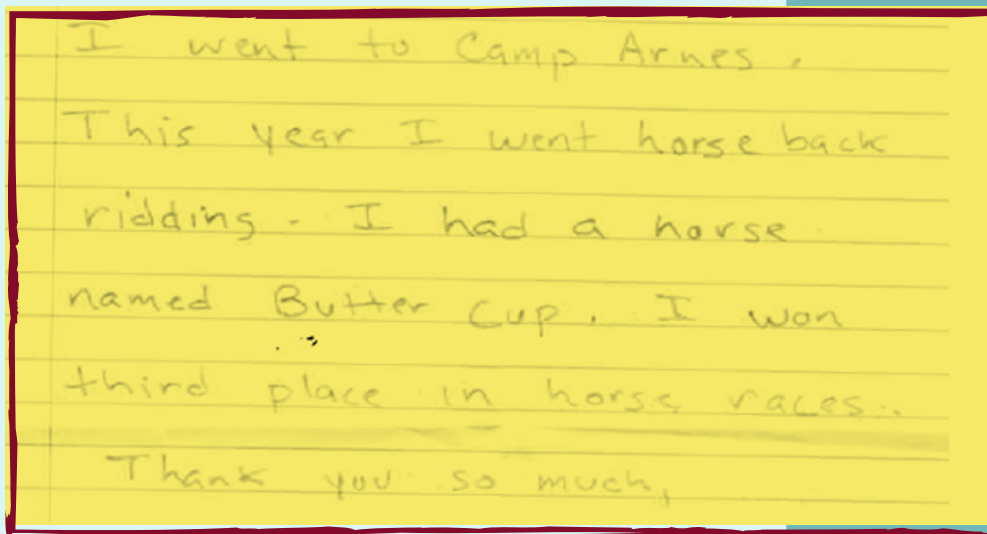 I went to Camp Arnes.
This year I went horse back
ridding. I had a horse
named Butter Cup. I won
third place in horse races..
Thank you so much,